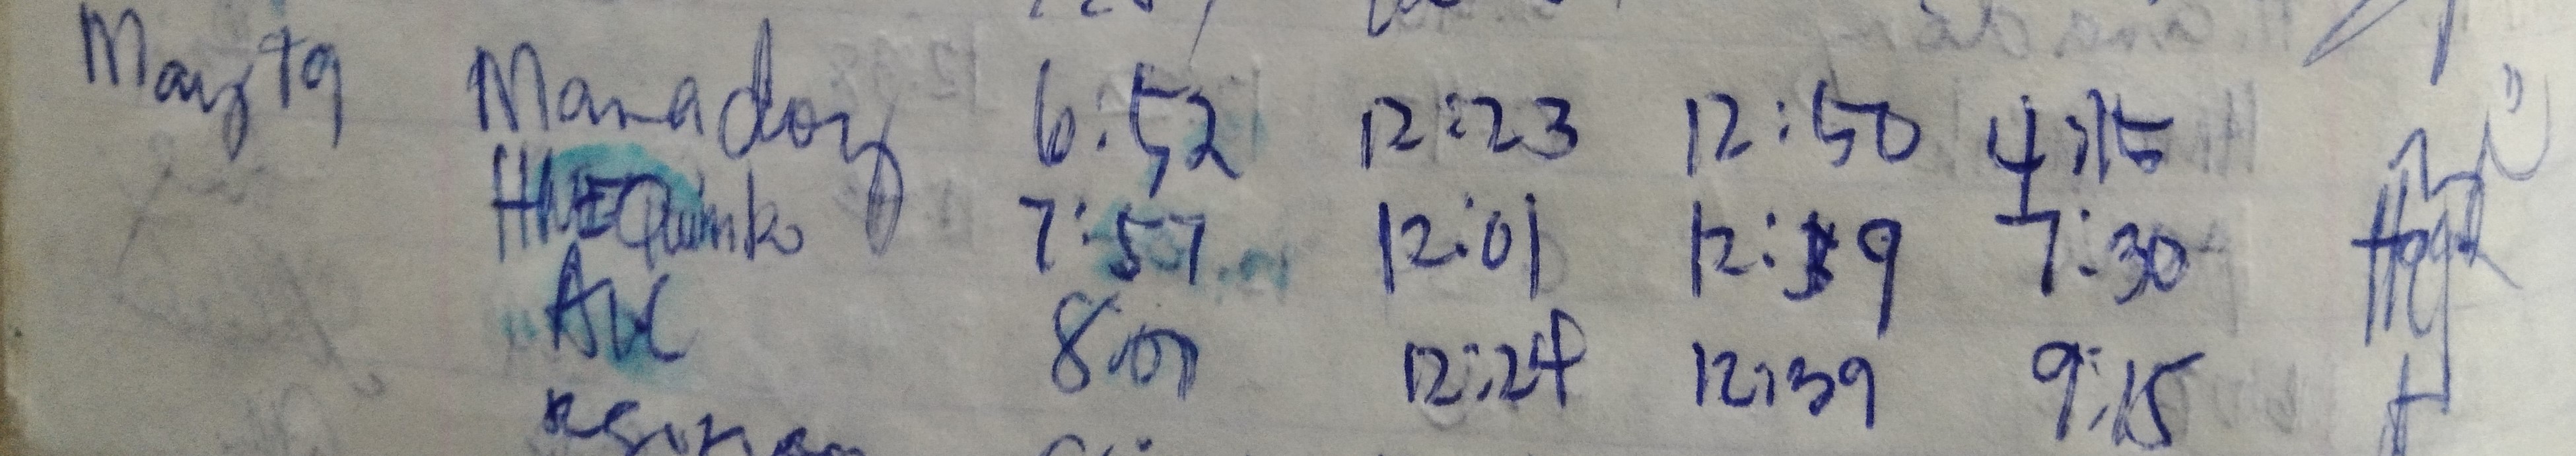 May 19 Manadoy 6:52 12:23 12:50 4:15
7:57 12:01 12:39 7:30
AVC 8:00 12:24 12:39 9:15